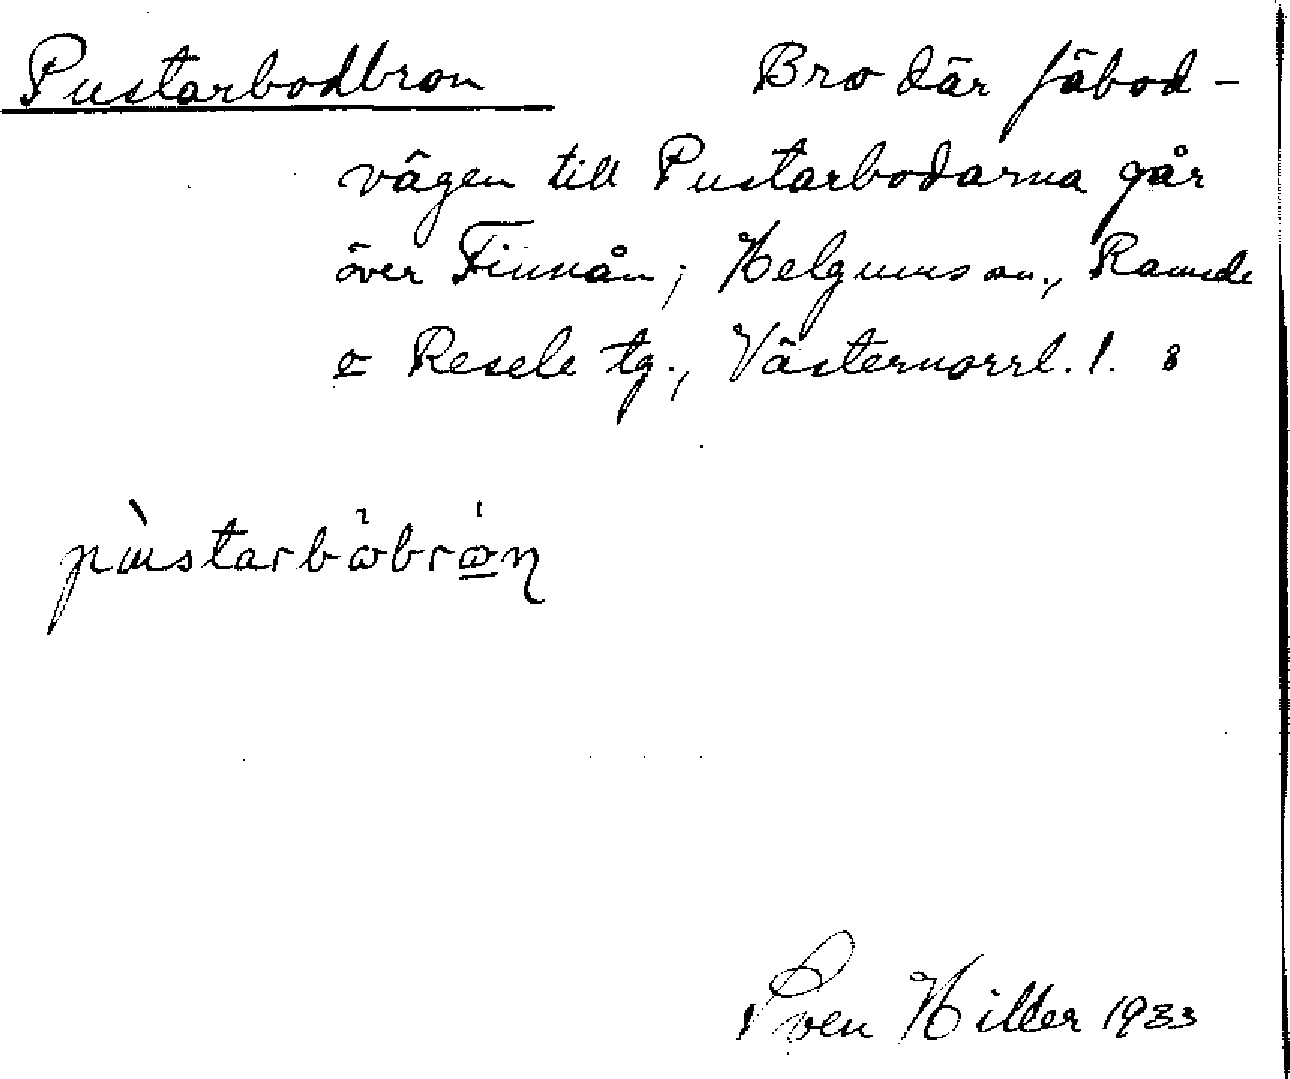 Pustarbodbron Bro där fäbod-
vägen till Pustarbodarna går
över Finnån; Helgumss on., Ramsele
o Resele tg., Västernorrl. l.
Sven Hiller 1933